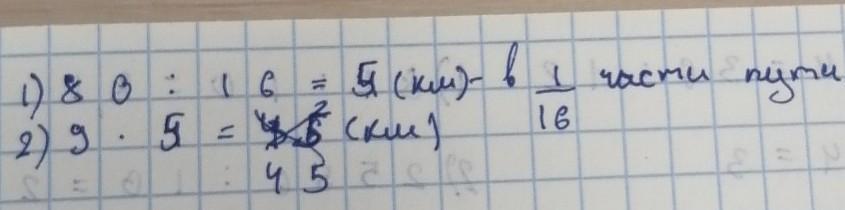 1) 80 : 16 = 5 (км) - в 1/16 части пути
2) 9 · 5 = (км)
45